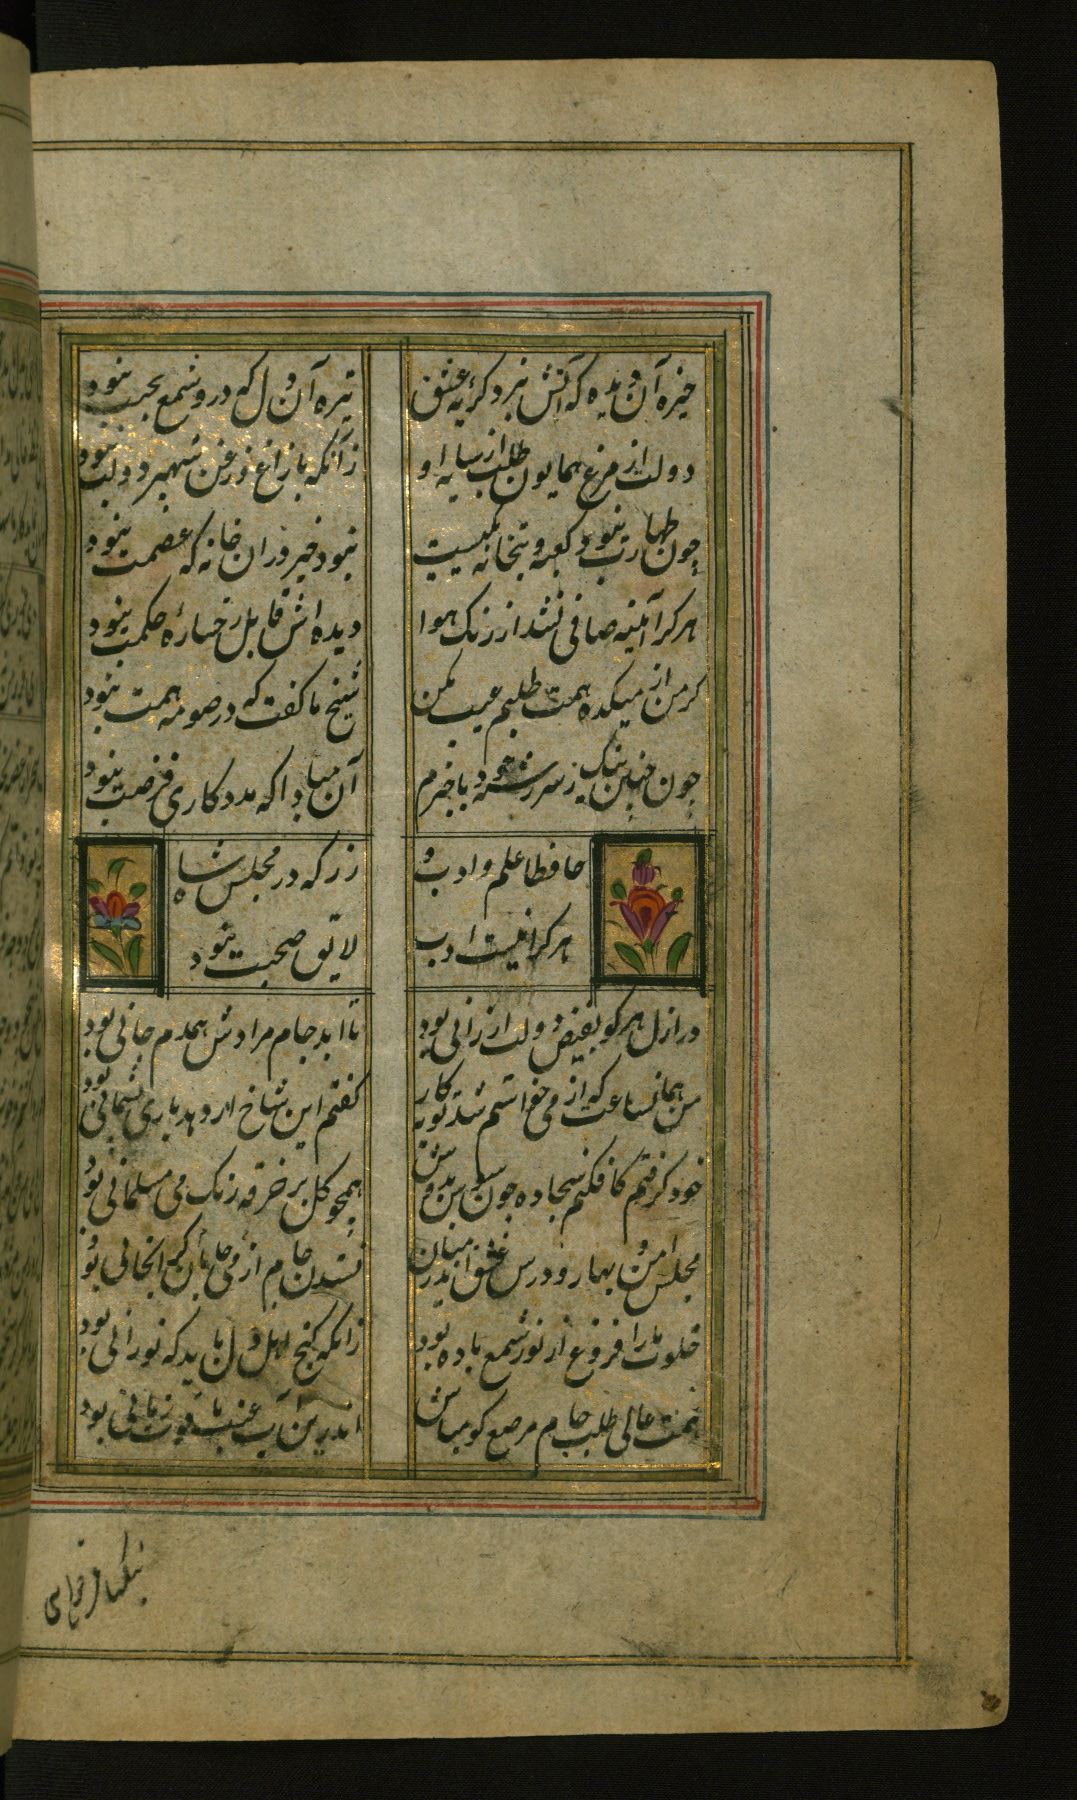 خیره آن دیده که آبش نبرد گریه عشق
تیره آن دل که درو شمع محبت نبود
دولت از مرغ همایون طلب از سایه او
زآنکه با زاغ و زغن شهپر دولت نبود
چون طهارت نبود کعبه و بتخانه یکیست
نبود خیر در ان خانه که عصمت نبود
هر کرا آینه صافی نشد از زنک هوا
دیده اش قابل رخساره حکمت نبود
کر من از میکده همت طلبم عیب مکن
شیخ ما کفت که در صومعه همت نبود
چون
آن مبادا که مددکاری فرصت نبود
حافظا علم و ادب
هر کرا نیست ادب
زر که در مجلس شاه
لایق صحبت نبود
در ازل هر کو بفیض دولت ارزانی بود
تا ابد جام مرادش همدم جانی بود
من همانساعت که از می خواستم شد توبه کار
کفتم این شاخ ار دهد باری پشیمانی بود
خود کرفتم کافکنم سجاده چون سوسن بدوش
همچو کل بر خرقه رنک می مسلمانی بود
مجلس انس و بهار و درس عشق اندر میان
نستدن جام می از جانان کران جانی بود
خلوت ما را فروغ از نور شمع باده بود
زانکه کنج اهل دل باید که نورانی بود
همت عالی طلب جام مرصع کو مباش